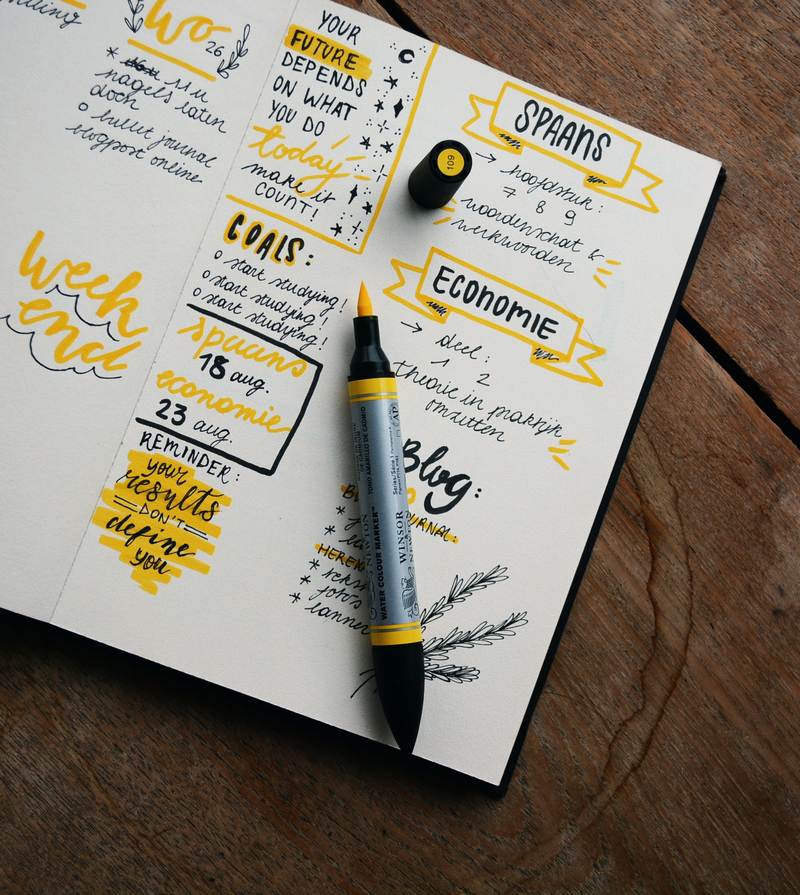 Wo
26
* 11 u
nagels laten
doen
o bullet journal
blogpost online
week
end
YOUR
FUTURE
DEPENDS
ON WHAT
YOU DO
today
make it
COUNT!
GOALS:
o start studying!
o start studying!
o start studying!
spaans
18 aug.
economie
23 aug.
REMINDER:
your
results
DON'T
define
you
109
SPAANS
→ hoofdstuk:
7 8 9
woordenschat &
werkwoorden
ECONOMIE
→ deel:
1 2
theorie in praktijk
omzetten
Blog:
JOURNAL:
*
*
* tekst
* foto's
* banner
TONO AMARILLO DE CADMIO
Series/Série 1
AP
WATER COLOUR MARKER™
WINSOR
NEWTON